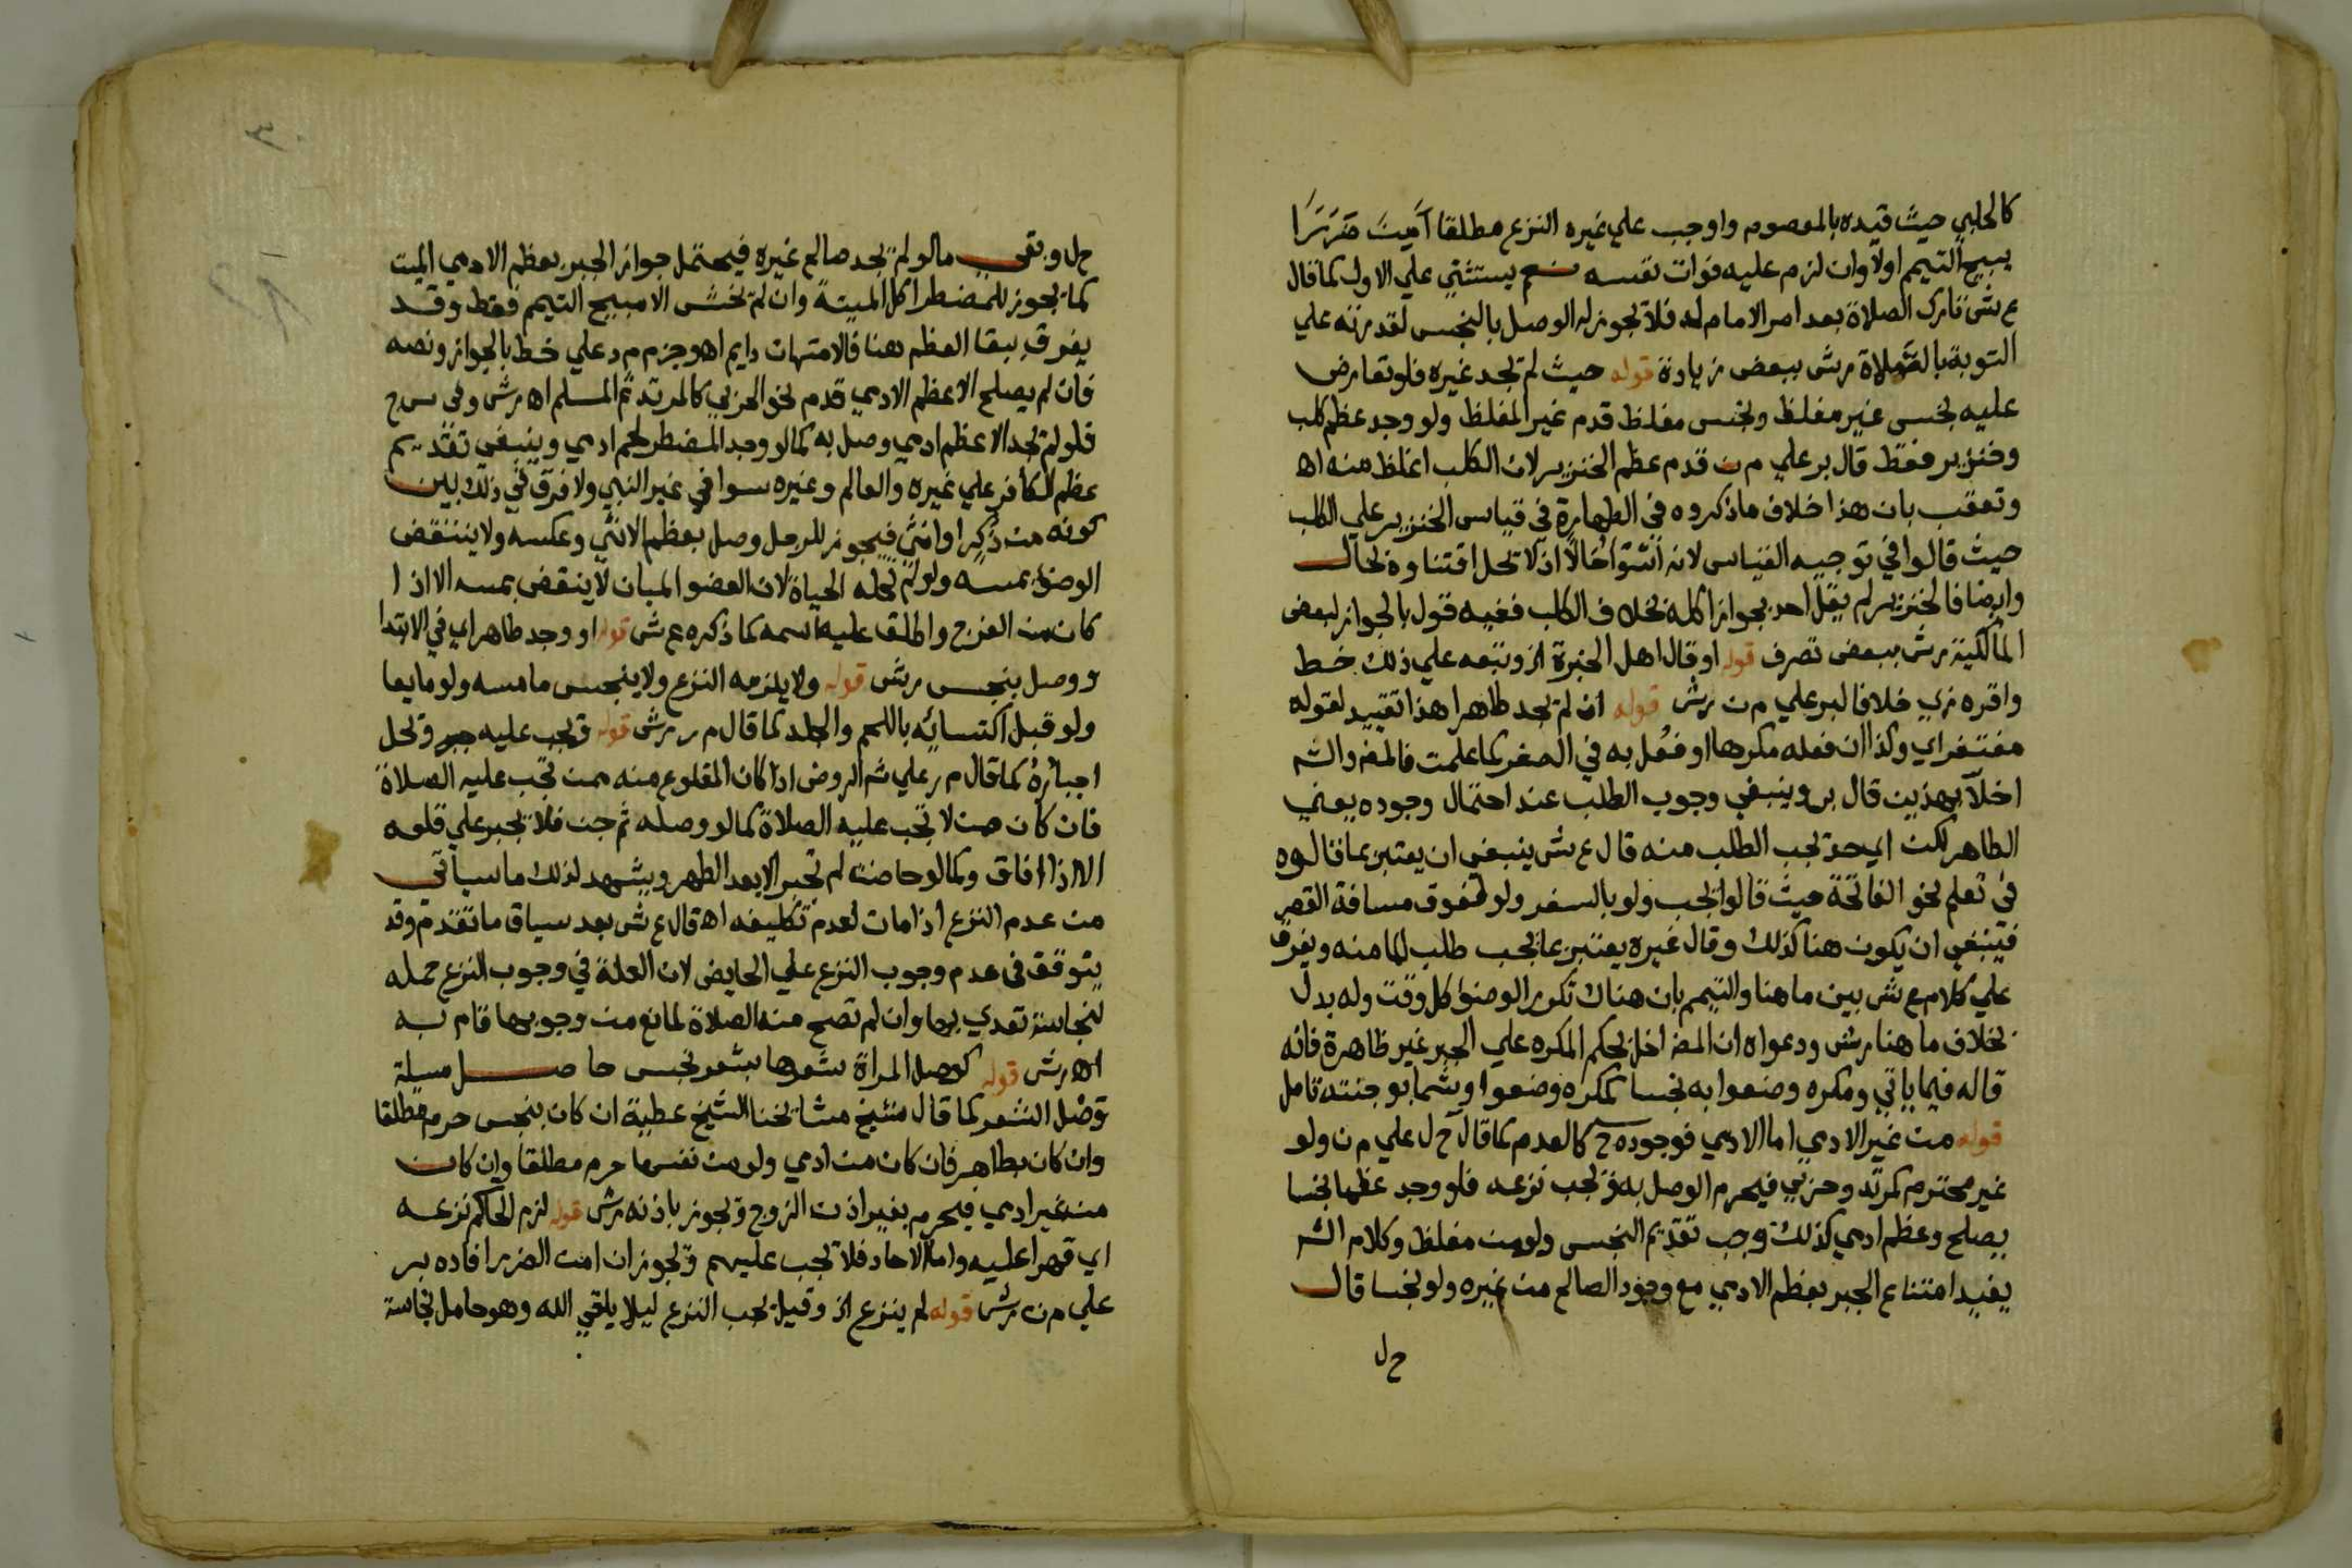 كالحلبي حيث قيده بالمعصوم واوجب علي غيره النزع مطلقا آمِنَ ضَرَرًا
يبيح التيمم اولا وان لزم عليه فوات نفسه نعم يستثني علي الاول كما قال
ع ش تارك الصلاة بعد امر الامام له فلا يجوز له الوصل بالنجس لقدرته علي
التوبة بالصلاة رش ببعض زيادة قوله حيث لم يجد غيره فلو تعارض
عليه نجس غير مغلظ ونجس مغلظ قدم غير المغلظ ولو وجد عظم كلب
وخنزير فقط قال بر علي م ن قدم عظم الخنزير لان الكلب اغلظ منه اه
وتعقب بان هذا خلاف ما ذكروه في الطهارة في قياس الخنزير علي الكلب
حيث قالوا في توجيه القياس لانه اسوا حالا اذ لا يحل اقتناوه بحال
وايضا فالخنزير لم يقل احد بجواز اكله بخلاف الكلب ففيه قول بالجواز لبعض
المالكية رش ببعض تصرف قوله او قال اهل الخبرة الخ وتبعه علي ذلك خط
واقره زي خلافا لبر علي م ن رش قوله ان لم يجد طاهرا هذا تقييد لقوله
مغتفر اي وكذا ان فعله مكرها او فُعل به في الصغر كما علمت فالمص والش
اخلا بهذين قال بر وينبغي وجوب الطلب عند احتمال وجوده يعني
الطاهر لكن اي حد يجب الطلب منه قال ع ش ينبغي ان يعتبر بما قالوه
في تعلم نحو الفاتحة حيث قالوا يجب ولو بالسفر ولو فوق مسافة القصر
فينبغي ان يكون هنا كذلك وقال غيره يعتبر بما يجب طلب الما منه ويفرق
علي كلام ع ش بين ما هنا والتيمم بان هناك تكرر الوضوء كل وقت وله بدل
بخلاف ما هنا رش ودعواه ان المص اخل بحكم المكره علي الجبر غير ظاهرة فانه
قاله فيما ياتي ومكره وضعوا به نجسا كمكره وضعوا وشما بوجنته تامل
قوله من غير الادمي اما الادمي فوجوده ح كالعدم كما قال ح ل علي م ن ولو
غير محترم كمرتد وحربي فيحرم الوصل به ويجب نزعه فلو وجد عظما نجسا
يصلح وعظم ادمي كذلك وجب تقديم النجس ولو من مغلظ وكلام الش
يفيد امتناع الجبر بعظم الادمي مع وجود الصالح من غيره ولو نجسا قال
ح ل
ح ل وبقي ما لو لم يجد صالح غيره فيحتمل جواز الجبر بعظم الادمي الميت
كما يجوز للمضطر اكل الميتة وان لم يخش الا مبيح التيمم فقط وقد
يفرق ببقا العظم هنا فالامتهان دايم اه وجزم م د علي خط بالجواز ونصه
فان لم يصلح الا عظم الادمي قدم نحو الحربي كالمرتد ثم المسلم اه رش وفي س ج
فلو لم يجد الا عظم ادمي وصل به كما لو وجد المضطر لحم ادمي وينبغي تقديم
عظم الكافر علي غيره والعالم وغيره سوا في غير النبي ولا فرق في ذلك بين
كونه من ذكر او انثي فيجوز للرجل وصل بعظم الانثي وعكسه ولا ينتقض
الوضو بمسه ولو لم تحله الحياة لان العضو المبان لا ينقض بمسه الا اذا
كان من الفرج واطلق عليه اسمه كما ذكره ع ش قوله او وجد طاهر اي في الابتدا
ووصل بنجس رش قوله ولا يلزمه النزع ولا ينجس ما مسه ولو مايعا
ولو قبل اكتسائه باللحم والجلد كما قال م ر رش قوله ويجب عليه جبر ومحل
اجباره كما قال م ر علي ش الروض اذا كان المقلوع منه ممن تجب عليه الصلاة
فان كان ممن لا تجب عليه الصلاة كما لو وصله ثم جن فلا يجبر علي قلعه
الا اذا افاق وكما لو حاضت لم تجبر الا بعد الطهر ويشهد لذلك ما سياتي
من عدم النزع اذا مات لعدم تكليفه اه قال ع ش بعد سياق ما تقدم وقد
يتوقف في عدم وجوب النزع علي الحايض لان العلة في وجوب النزع حمله
لنجاسة تعدي بها وان لم تصح منه الصلاة لمانع من وجوبها قام به
اه رش قوله كوصل المراة شعرها بشعر نجس حاصل مسيلة
وصل الشعر كما قال شيخ مشايخنا الشيخ عطية ان كان بنجس حرم مطلقا
وان كان بطاهر فان كان من ادمي ولو من نفسها حرم مطلقا وان كان
من غير ادمي فيحرم بغير اذن الزوج ويجوز باذنه رش قوله لزم الحاكم نزعه
اي قهرا عليه واما الاحاد فلا يجب عليهم ويجوز ان امن الضرر افاده بر
علي م ن رش قوله لم ينزع الخ وقيل يجب النزع ليلا يلقي الله وهو حامل نجاسة